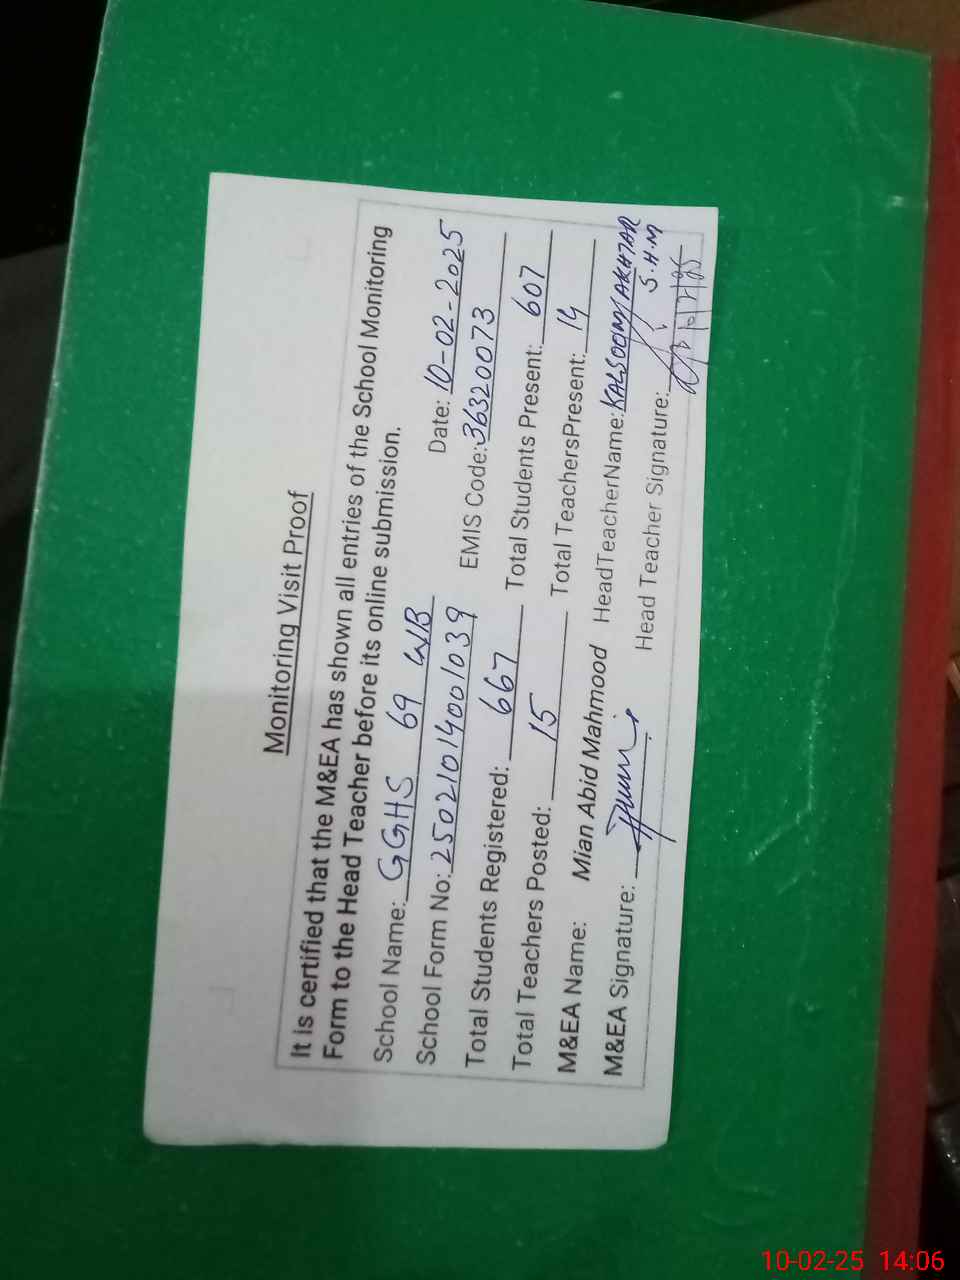 Monitoring Visit Proof
It is certified that the M&EA has shown all entries of the School Monitoring
Form to the Head Teacher before its online submission.
School Name: GGHS 69 WB Date: 10-02-2025
School Form No: 25021014001039 EMIS Code: 36320073
Total Students Registered: 667 Total Students Present: 607
Total Teachers Posted: 15 Total TeachersPresent: 14
M&EA Name: Mian Abid Mahmood HeadTeacherName: KALSOOM AKHTAR
M&EA Signature: Head Teacher Signature: S.H.M
10-02-25 14:06